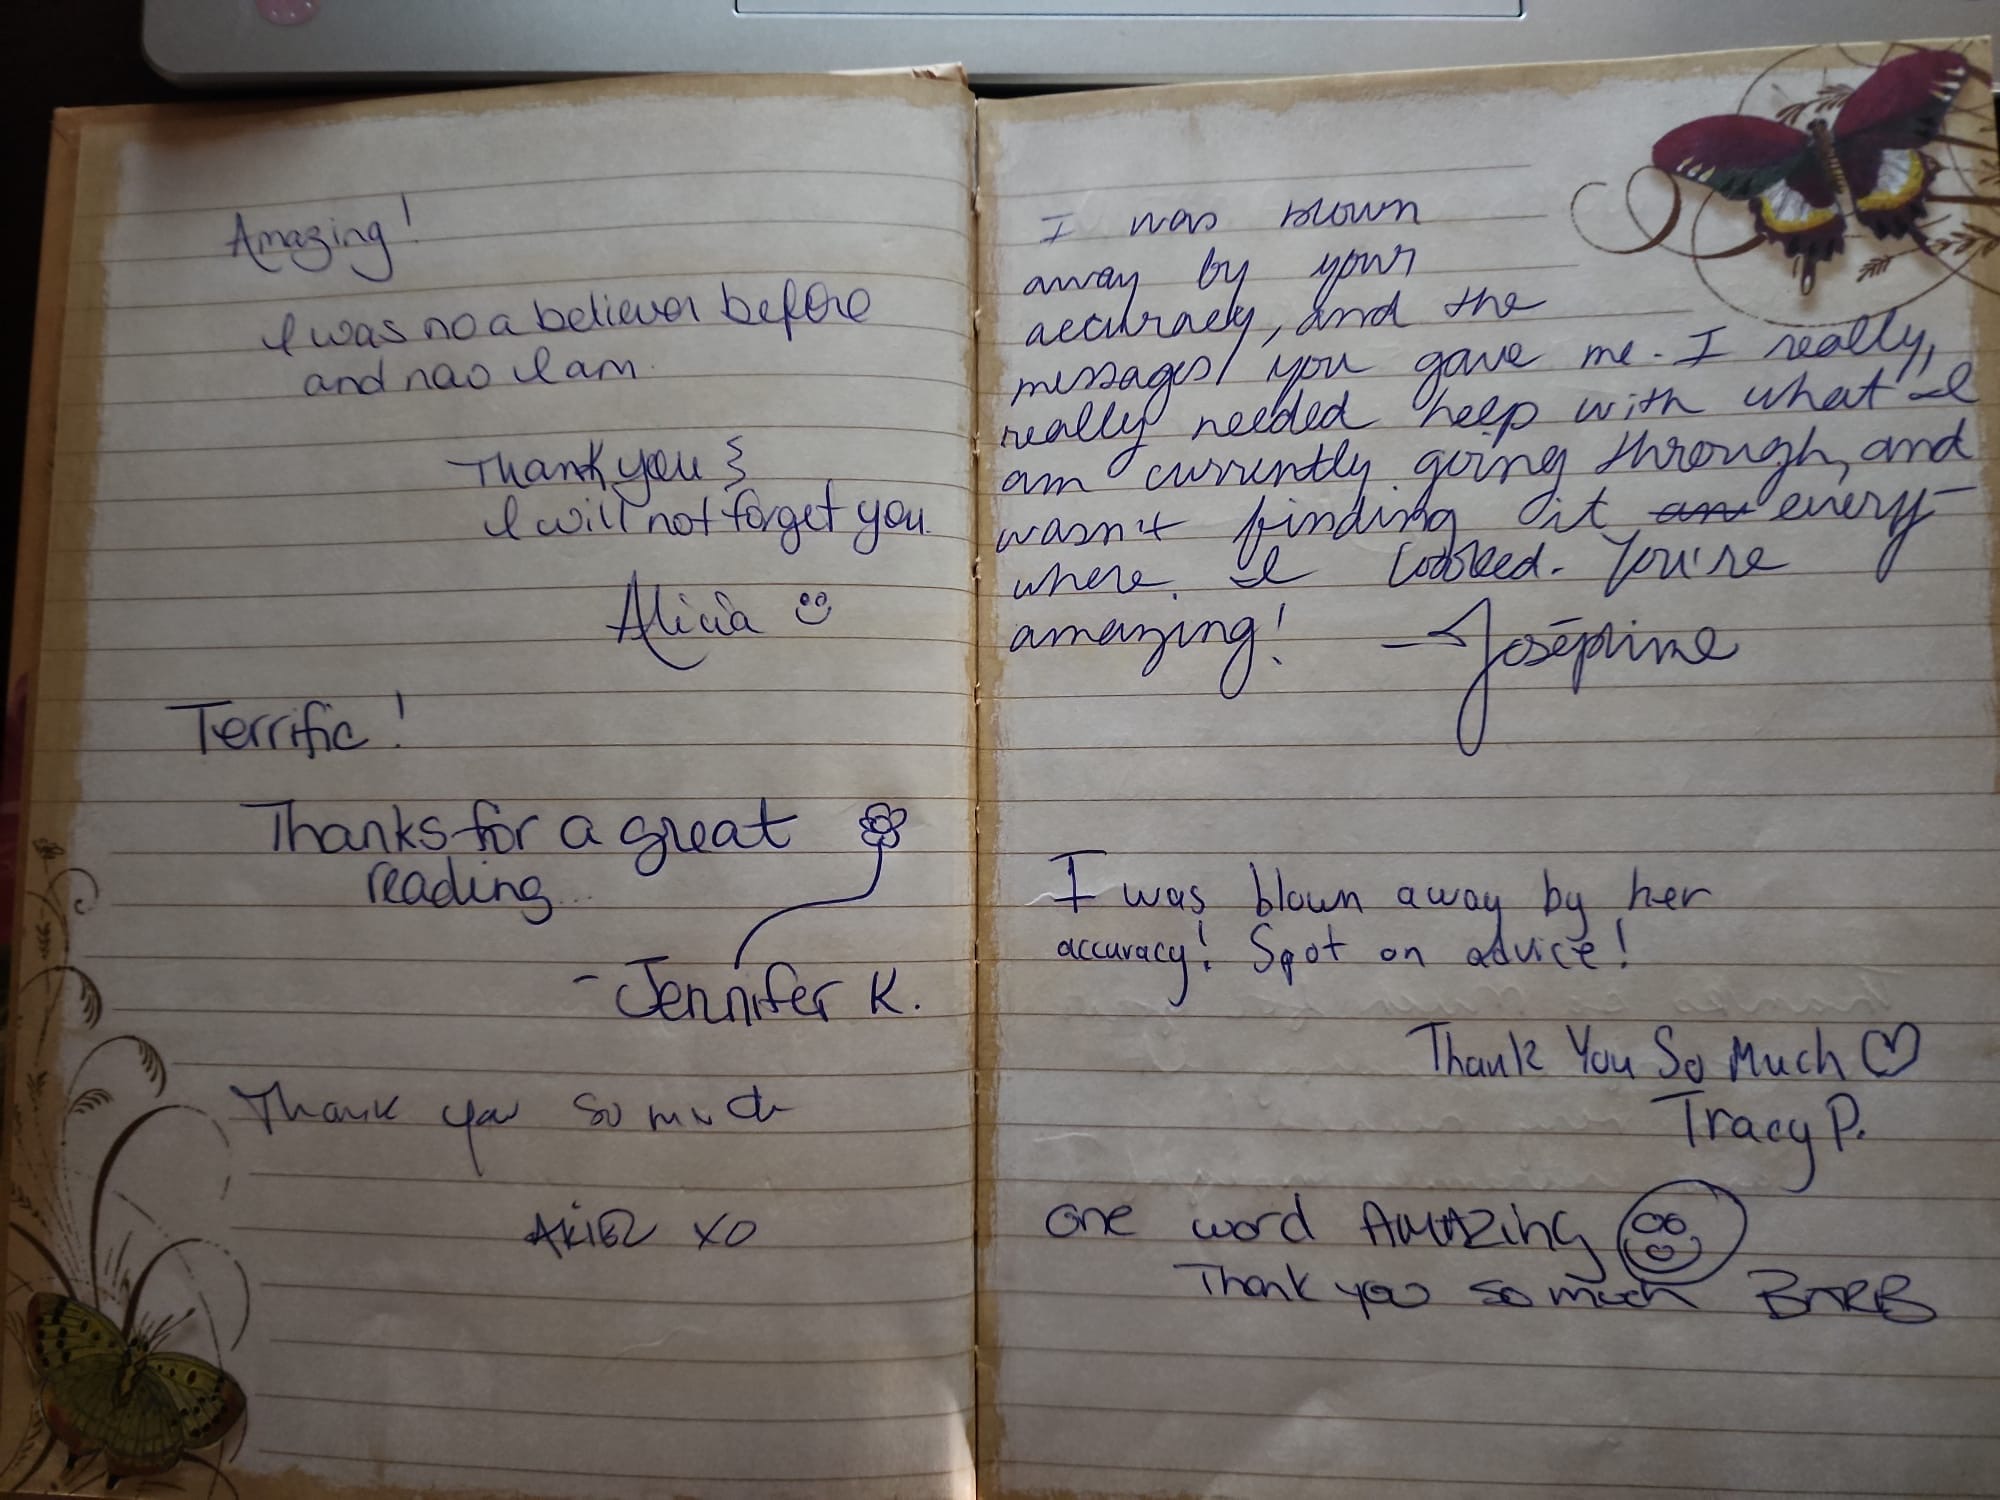 Amazing!
I was no a believer before
and nao I am.
Thank you
I will not forget you.
Alicia
Terrific!
Thanks for a great
reading...
- Jennifer K.
Thank you so much
ARIEL XO
I was blown
away by your
accuracy, and the
messages you gave me. I really,
really needed help with what I
am currently going through, and
wasn't finding it an every-
where I looked. You're
amazing! - Joséphine
I was blown away by her
accuracy! Spot on advice!
Thank You So Much ♡
Tracy P.
One word AMAZing
Thank you so much BARB